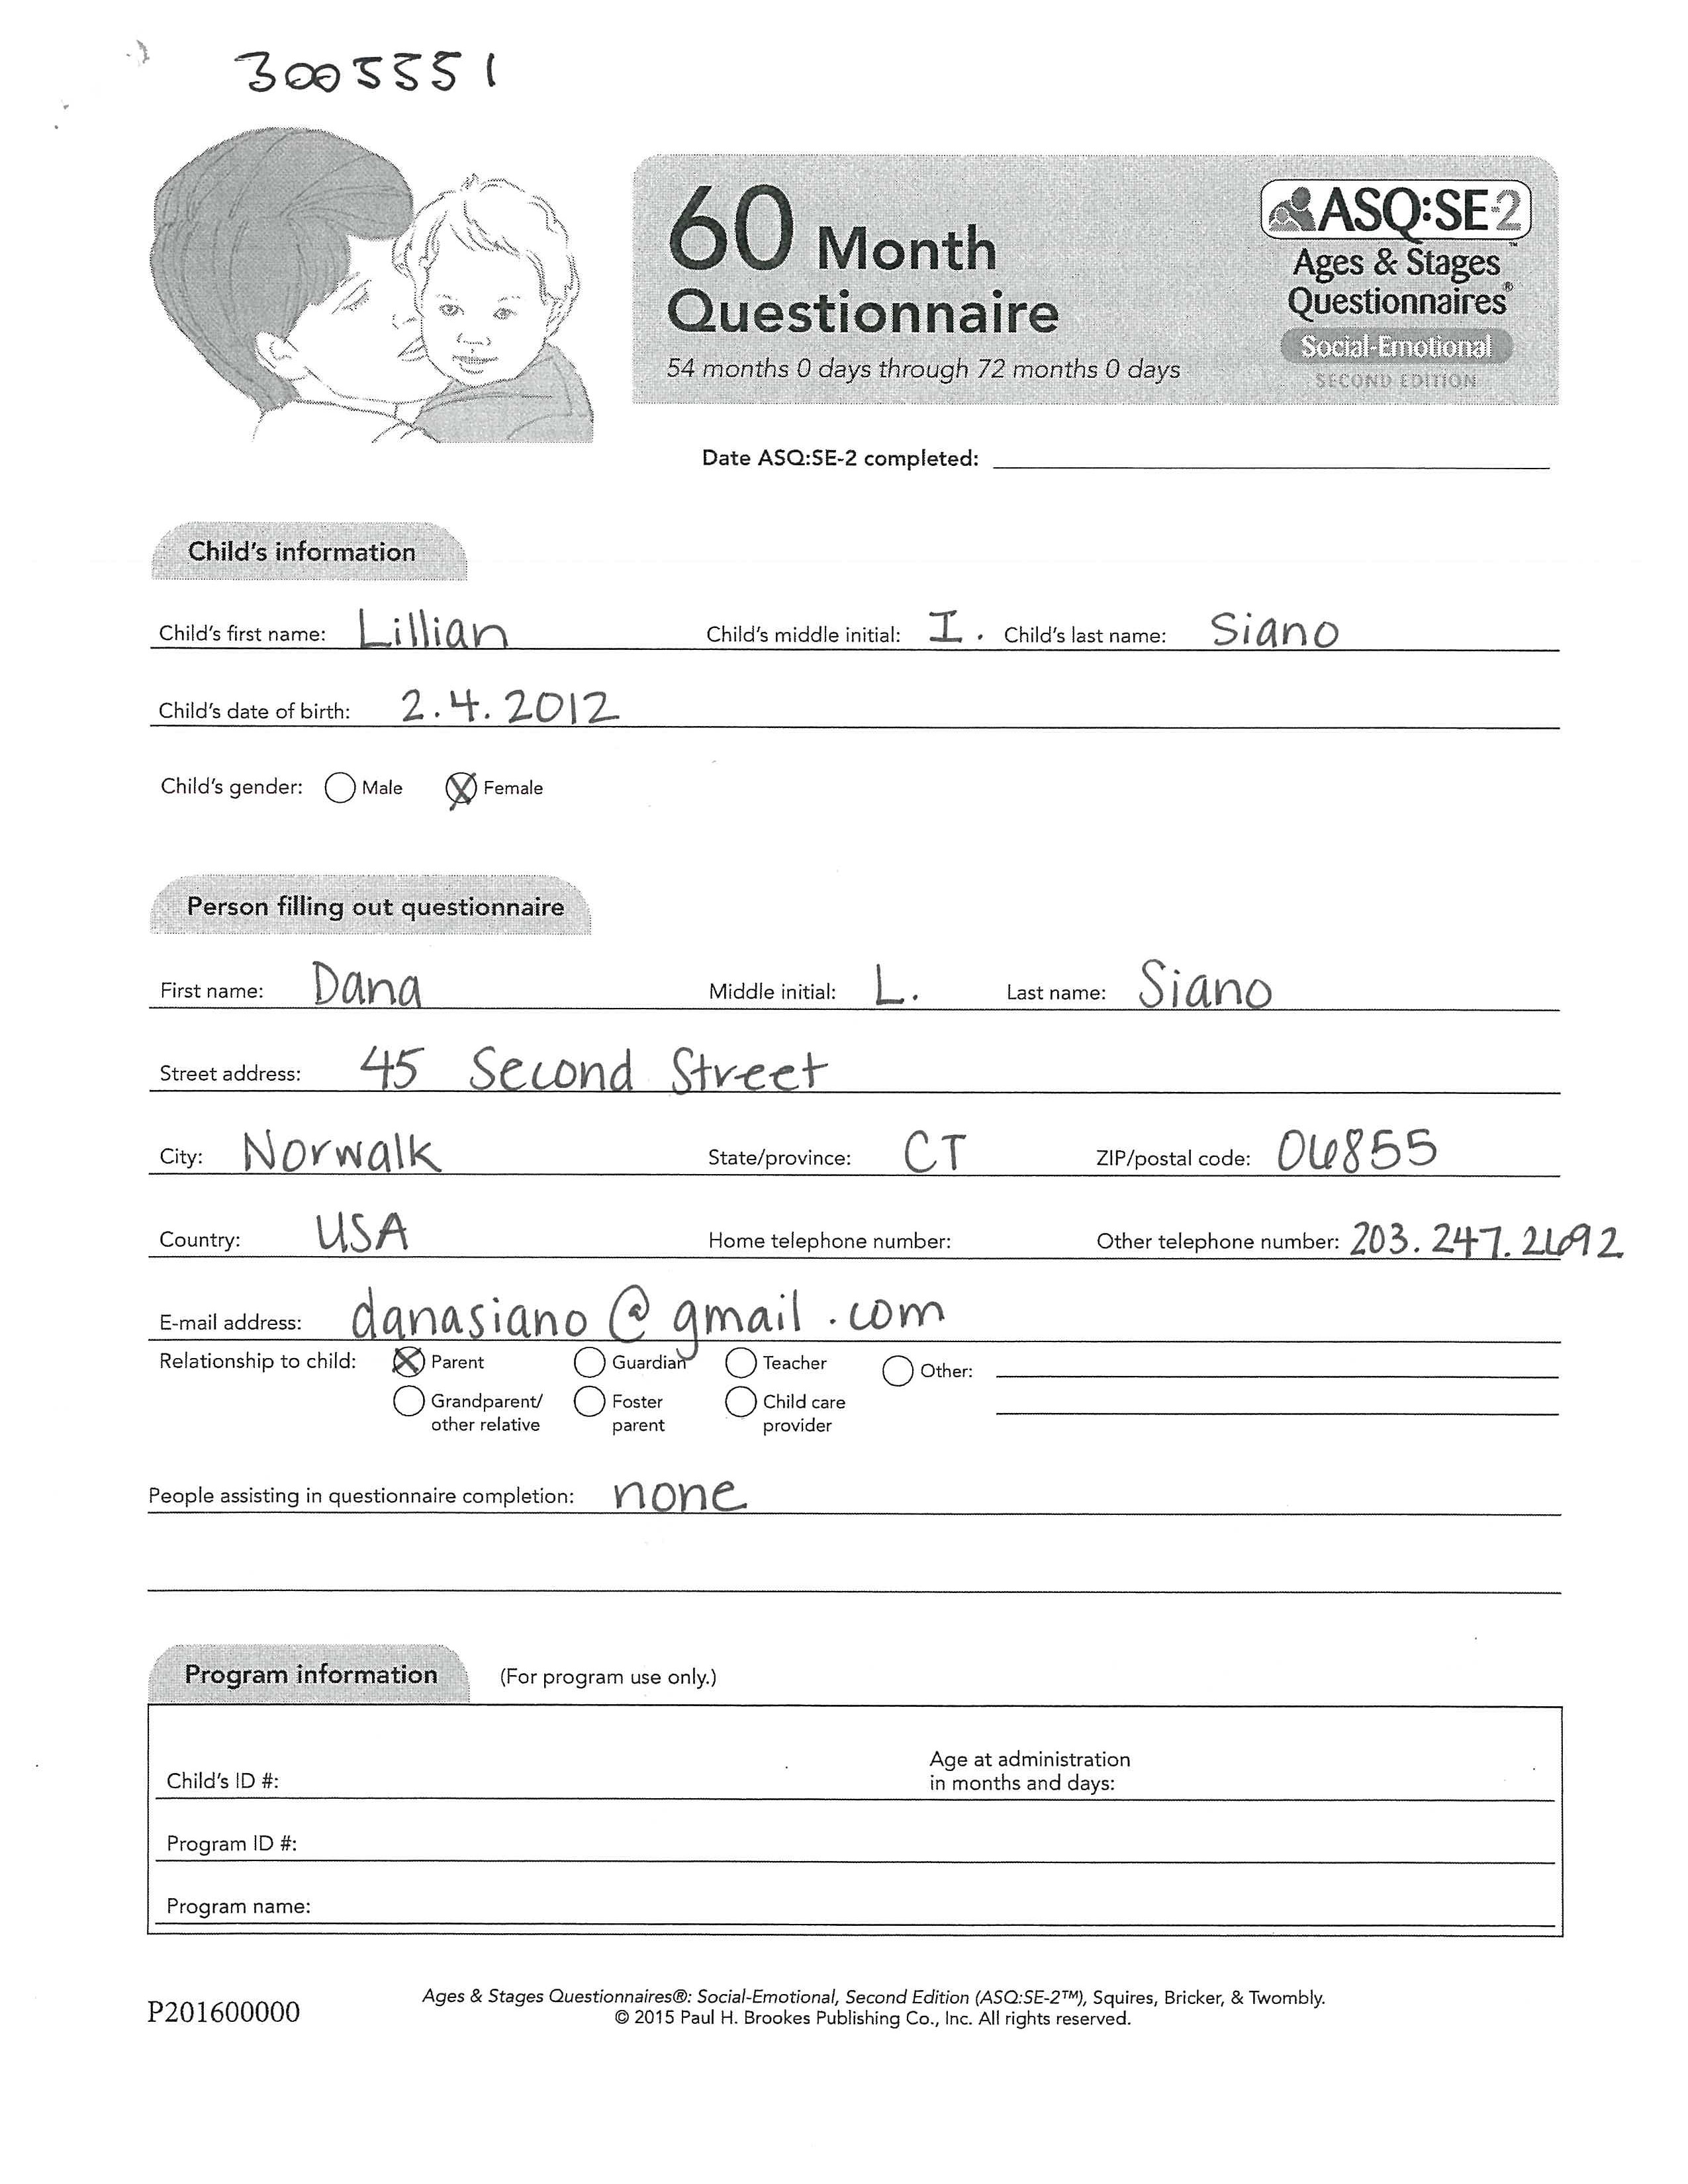 3005551
60 Month
Questionnaire
54 months 0 days through 72 months 0 days
ASQ:SE-2™
Ages & Stages
Questionnaires®
Social-Emotional
SECOND EDITION
Date ASQ:SE-2 completed:
Child's information
Child's first name: Lillian Child's middle initial: I. Child's last name: Siano
Child's date of birth: 2.4.2012
Child's gender: Male Female
Person filling out questionnaire
First name: Dana Middle initial: L. Last name: Siano
Street address: 45 Second Street
City: Norwalk State/province: CT ZIP/postal code: 06855
Country: USA Home telephone number: Other telephone number: 203.247.2692
E-mail address: danasiano@gmail.com
Relationship to child: Parent Guardian Teacher Other:
Grandparent/ Foster Child care
other relative parent provider
People assisting in questionnaire completion: none
Program information (For program use only.)
Age at administration
Child's ID #: in months and days:
Program ID #:
Program name:
P201600000
Ages & Stages Questionnaires®: Social-Emotional, Second Edition (ASQ:SE-2™), Squires, Bricker, & Twombly.
© 2015 Paul H. Brookes Publishing Co., Inc. All rights reserved.